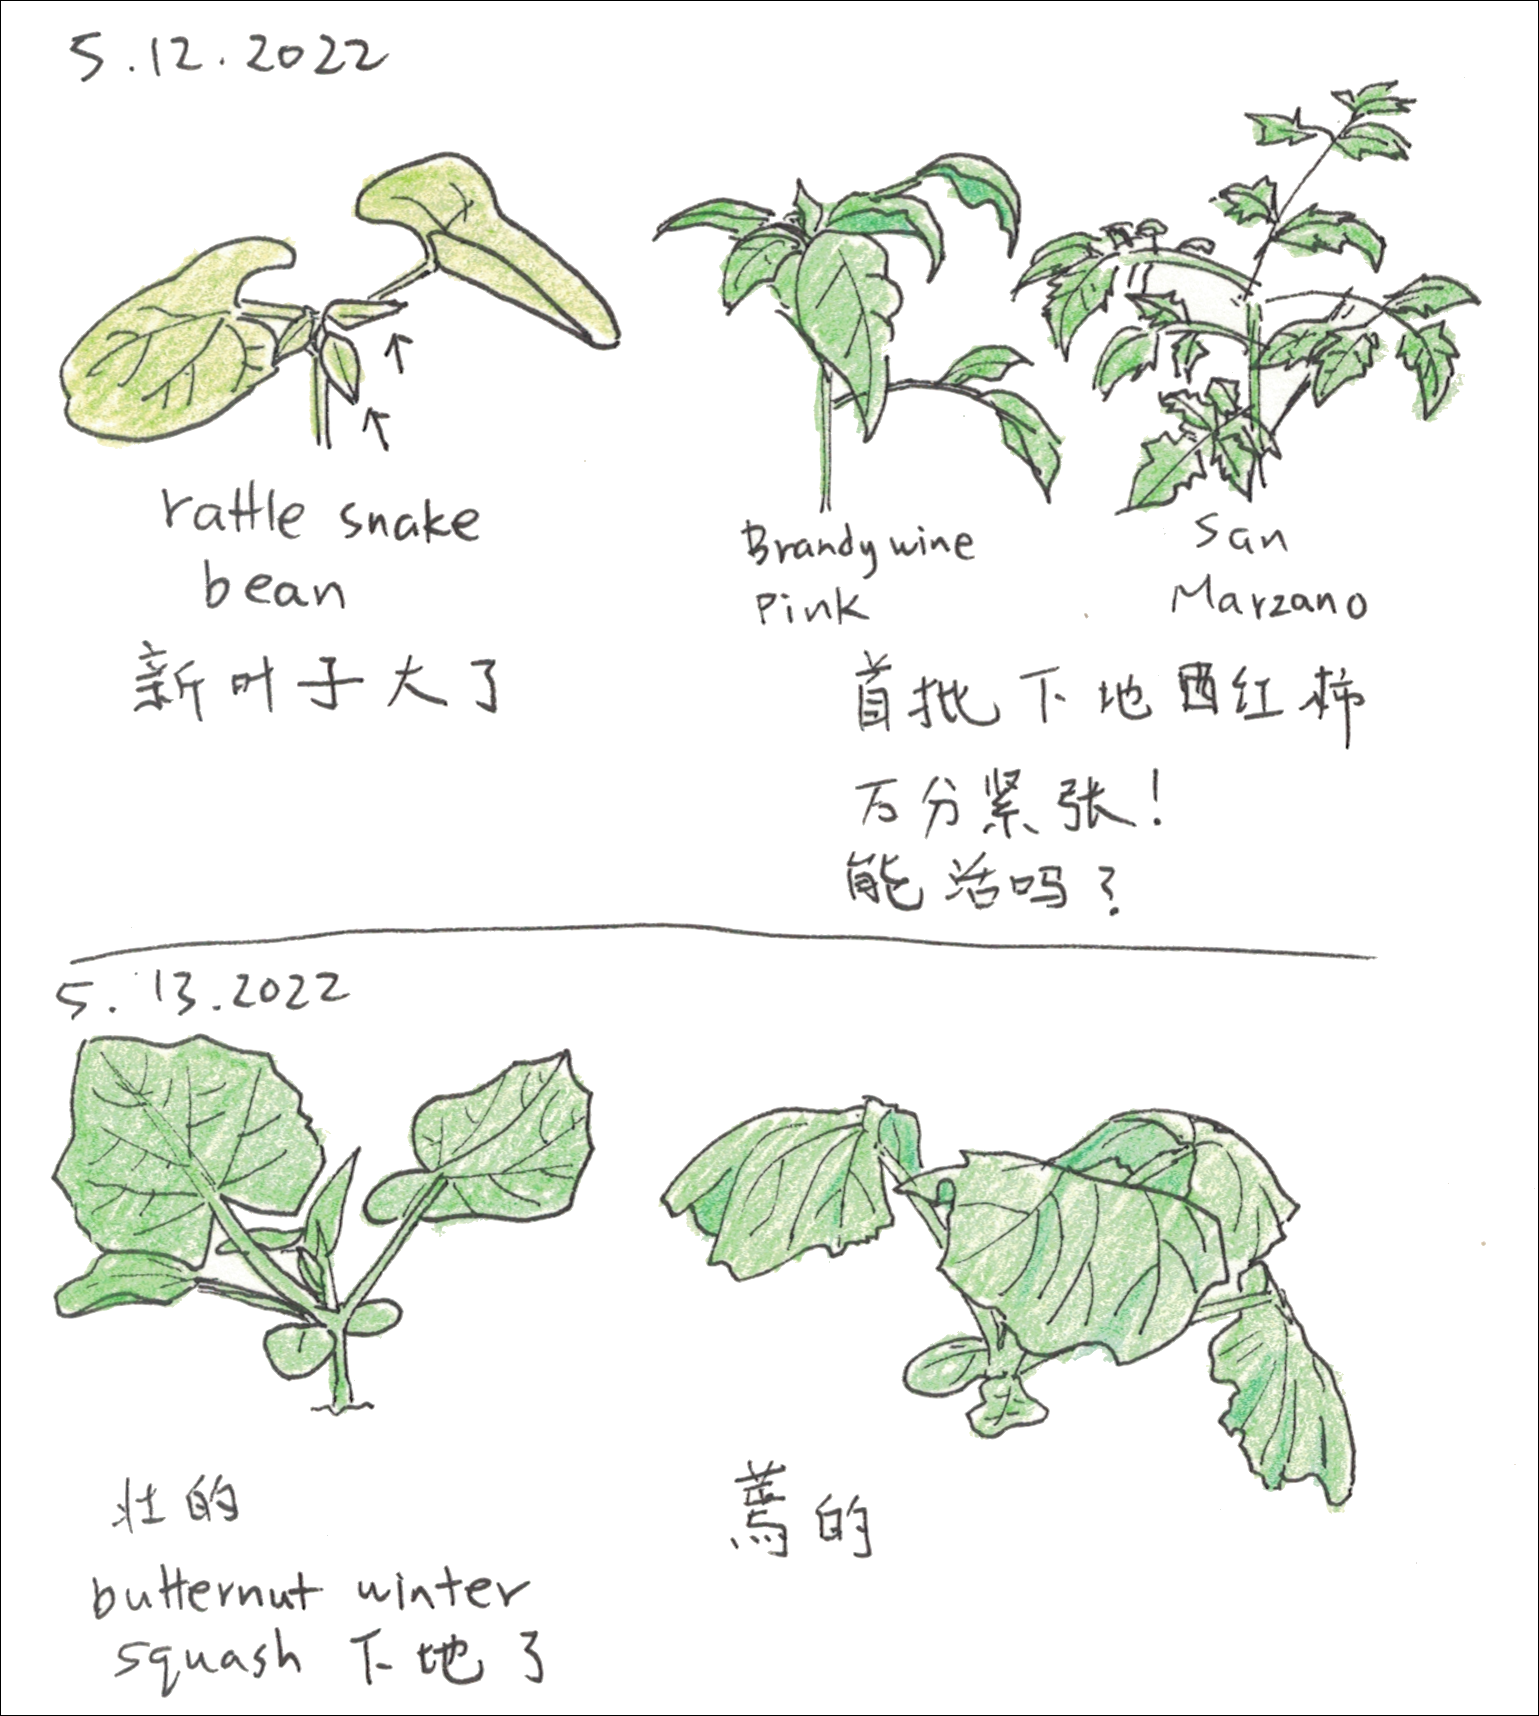 5.12.2022
rattle snake
bean
新叶子大了
Brandywine
Pink
San
Marzano
首批下地西红柿
万分紧张!
能活吗?
5.13.2022
壮的
butternut winter
squash 下地了
蔫的